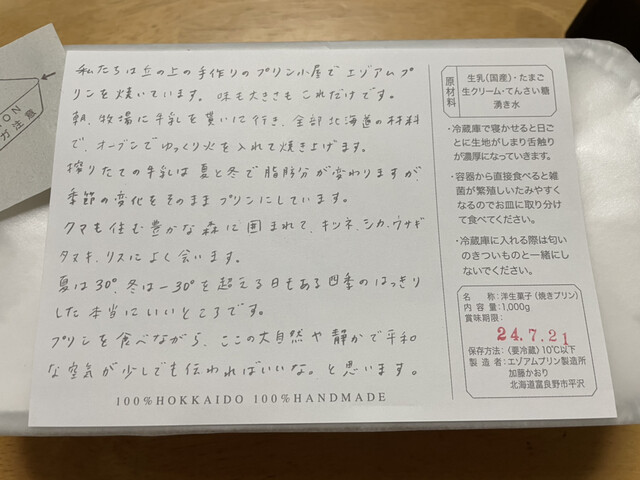 私たちは丘の上の手作りのプリン小屋でエゾアムプ
リンを焼いています。味も大きさもこれだけです。
朝、牧場に牛乳を貰いに行き、全部北海道の材料
で、オーブンでゆっくり火を入れて焼き上げます。
搾りたての牛乳は夏と冬で脂肪分が変わりますが、
季節の変化をそのままプリンにしています。
クマも住む豊かな森に囲まれて、キツネ、シカ、ウサギ
タヌキ、リスによく会います。
夏は30°、冬は-30°を超える日もある四季のはっきり
した本当にいいところです。
プリンを食べながら、ここの大自然や静かで平和
な空気が少しでも伝わればいいな。と思います。
100%HOKKAIDO 100%HANDMADE
原材料
生乳(国産)・たまご
生クリーム・てんさい糖
湧き水
・冷蔵庫で寝かせると日ご
とに生地がしまり舌触り
が濃厚になっていきます。
・容器から直接食べると雑
菌が繁殖しいたみやすく
なるのでお皿に取り分け
て食べてください。
・冷蔵庫に入れる際は匂い
のきついものと一緒にし
ないでください。
名称:洋生菓子(焼きプリン)
内容量:1,000g
賞味期限:
24.7.21
保存方法:〈要冷蔵〉10℃以下
製造者:エゾアムプリン製造所
加藤かおり
北海道富良野市平沢
ON
ガ注意